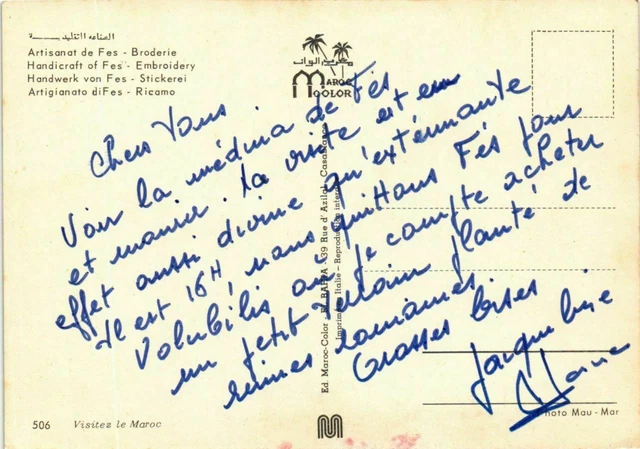 الصناعة التقليدية
Artisanat de Fes - Broderie
Handicraft of Fes - Embroidery
Handwerk von Fes - Stickerei
Artigianato diFes - Ricamo
MAROC
COLOR
Chers Tous
Voir la médina de Fés
et mourir. La visite est en
effet aussi divine qu'exténuante
Il est 16H, nous quittons Fés pour
Volubilis où je compte acheter
un petit terrain planté de
ruines romaines
Grosses bises
Jacqueline
Ed. Maroc-Color - 39 Rue d'Azilal - Casablanca
Imprimé Italie - Reproduction interdite
506 Visitez le Maroc
Photo Mau - Mar